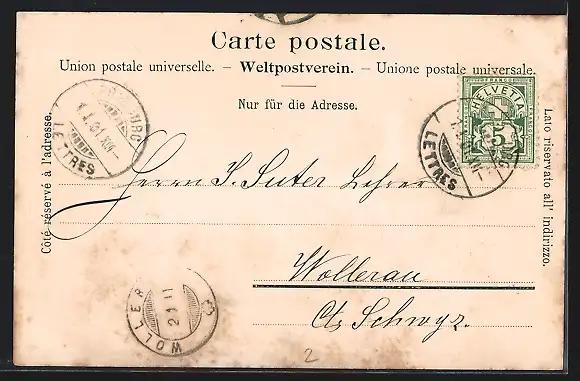 Carte postale.
Union postale universelle. – Weltpostverein. – Unione postale universale.
Nur für die Adresse.
Côté réservé à l'adresse.
Lato riservato all' indirizzo.
FRANCO
HELVETIA
5
LETTRES
LETTRES
Herrn J. Suter Lehrer
Wollerau
Ct. Schwyz.
WOLLER
2